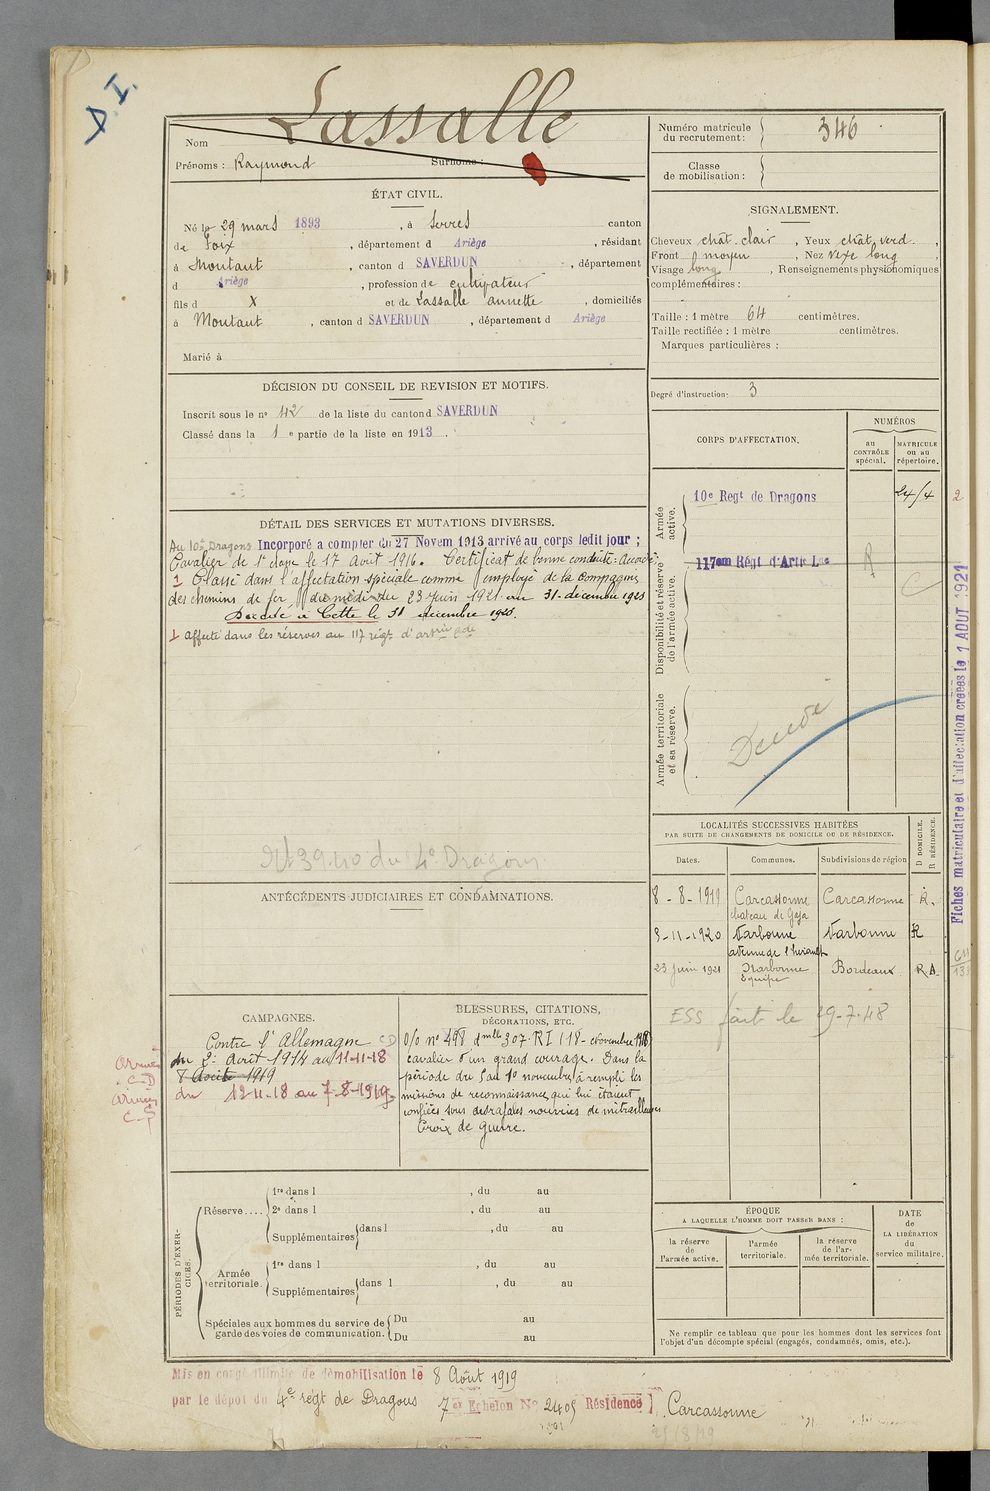 D. I.
Lassalle
Nom
Prénoms : Raymond Surnoms :
Numéro matricule du recrutement : 346
Classe de mobilisation :
ÉTAT CIVIL.
Né le 29 mars 1893 , à Serres canton
de Foix , département d Ariège , résidant
à Montaut , canton d SAVERDUN , département
d Ariège , profession de cultivateur
fils d X et de Lassalle annette , domiciliés
à Montaut , canton d SAVERDUN , département d Ariège
Marié à
SIGNALEMENT.
Cheveux chât. clair , Yeux chât. verd. ,
Front moyen , Nez vexe long ,
Visage long , Renseignements physionomiques
complémentaires :
Taille : 1 mètre 64 centimètres.
Taille rectifiée : 1 mètre centimètres.
Marques particulières :
Degré d'instruction : 3
DÉCISION DU CONSEIL DE REVISION ET MOTIFS.
Inscrit sous le n° 42 de la liste du canton d SAVERDUN
Classé dans la 1 e partie de la liste en 1913 .
DÉTAIL DES SERVICES ET MUTATIONS DIVERSES.
Au 10e Dragons Incorporé a compter du 27 Novem 1913 arrivé au corps ledit jour ;
Cavalier de 1e classe le 17 Août 1916. Certificat de bonne conduite : Accordé.
1 Classé dans l'affectation spéciale comme employé de la Compagnie
des chemins de fer du midi du 23 Juin 1921 au 31 décembre 1923
Décédé à Cette le 31 décembre 1923.
1 affecté dans les réserves au 117 régt d'artrie Lde
Rt 39.40 du 4e Dragons
CORPS D'AFFECTATION.
NUMÉROS
au CONTRÔLE spécial.
MATRICULE ou au répertoire.
Armée active.
10e Regt de Dragons
24/4
2
Disponibilité et réserve de l'armée active.
117eme Régt d'Artie Lde
R
C
Armée territoriale et sa réserve.
Décédé
Fiches matriculaire et d'affectation créées le 1 AOUT 1921
LOCALITÉS SUCCESSIVES HABITÉES
PAR SUITE DE CHANGEMENTS DE DOMICILE OU DE RÉSIDENCE.
Dates. Communes. Subdivisions de région D DOMICILE. R RÉSIDENCE.
8 - 8 - 1919 Carcassonne Carcassonne R.
château de Gaja
3-11-1920 Narbonne Narbonne R
avenue de l'hérault
23 Juin 1921 Narbonne Bordeaux R.A.
Equipe
ESS fait le 29-7-48
ANTÉCÉDENTS JUDICIAIRES ET CONDAMNATIONS.
CAMPAGNES.
Contre l'Allemagne CD
du 2 Août 1914 au 11-11-18
8 Août 1919
du 12-11-18 au 7-8-1919
BLESSURES, CITATIONS,
DÉCORATIONS, ETC.
O/o n° 498 307 RI (18 novembre 1918)
cavalier d'un grand courage. Dans la
période du 5 au 10 novembre, a rempli les
missions de reconnaissance qui lui étaient
confiées sous des rafales nourries de mitrailleuses
Croix de guerre.
PÉRIODES D'EXERCICES.
Réserve .... 1re dans l , du au
2e dans l , du au
Supplémentaires dans l , du au
Armée territoriale. 1re dans l , du au
Supplémentaires dans l , du au
Spéciales aux hommes du service de garde des voies de communication. Du au
Du au
ÉPOQUE
A LAQUELLE L'HOMME DOIT PASSER DANS :
la réserve de l'armée active.
l'armée territoriale.
la réserve de l'armée territoriale.
DATE de LA LIBÉRATION du service militaire.
Ne remplir ce tableau que pour les hommes dont les services font
l'objet d'un décompte spécial (engagés, condamnés, omis, etc.).
Mis en congé illimité de démobilisation le 8 Août 1919
par le dépot du 4e régt de Dragons 7 er Echelon No 2405 Résidence Carcassonne